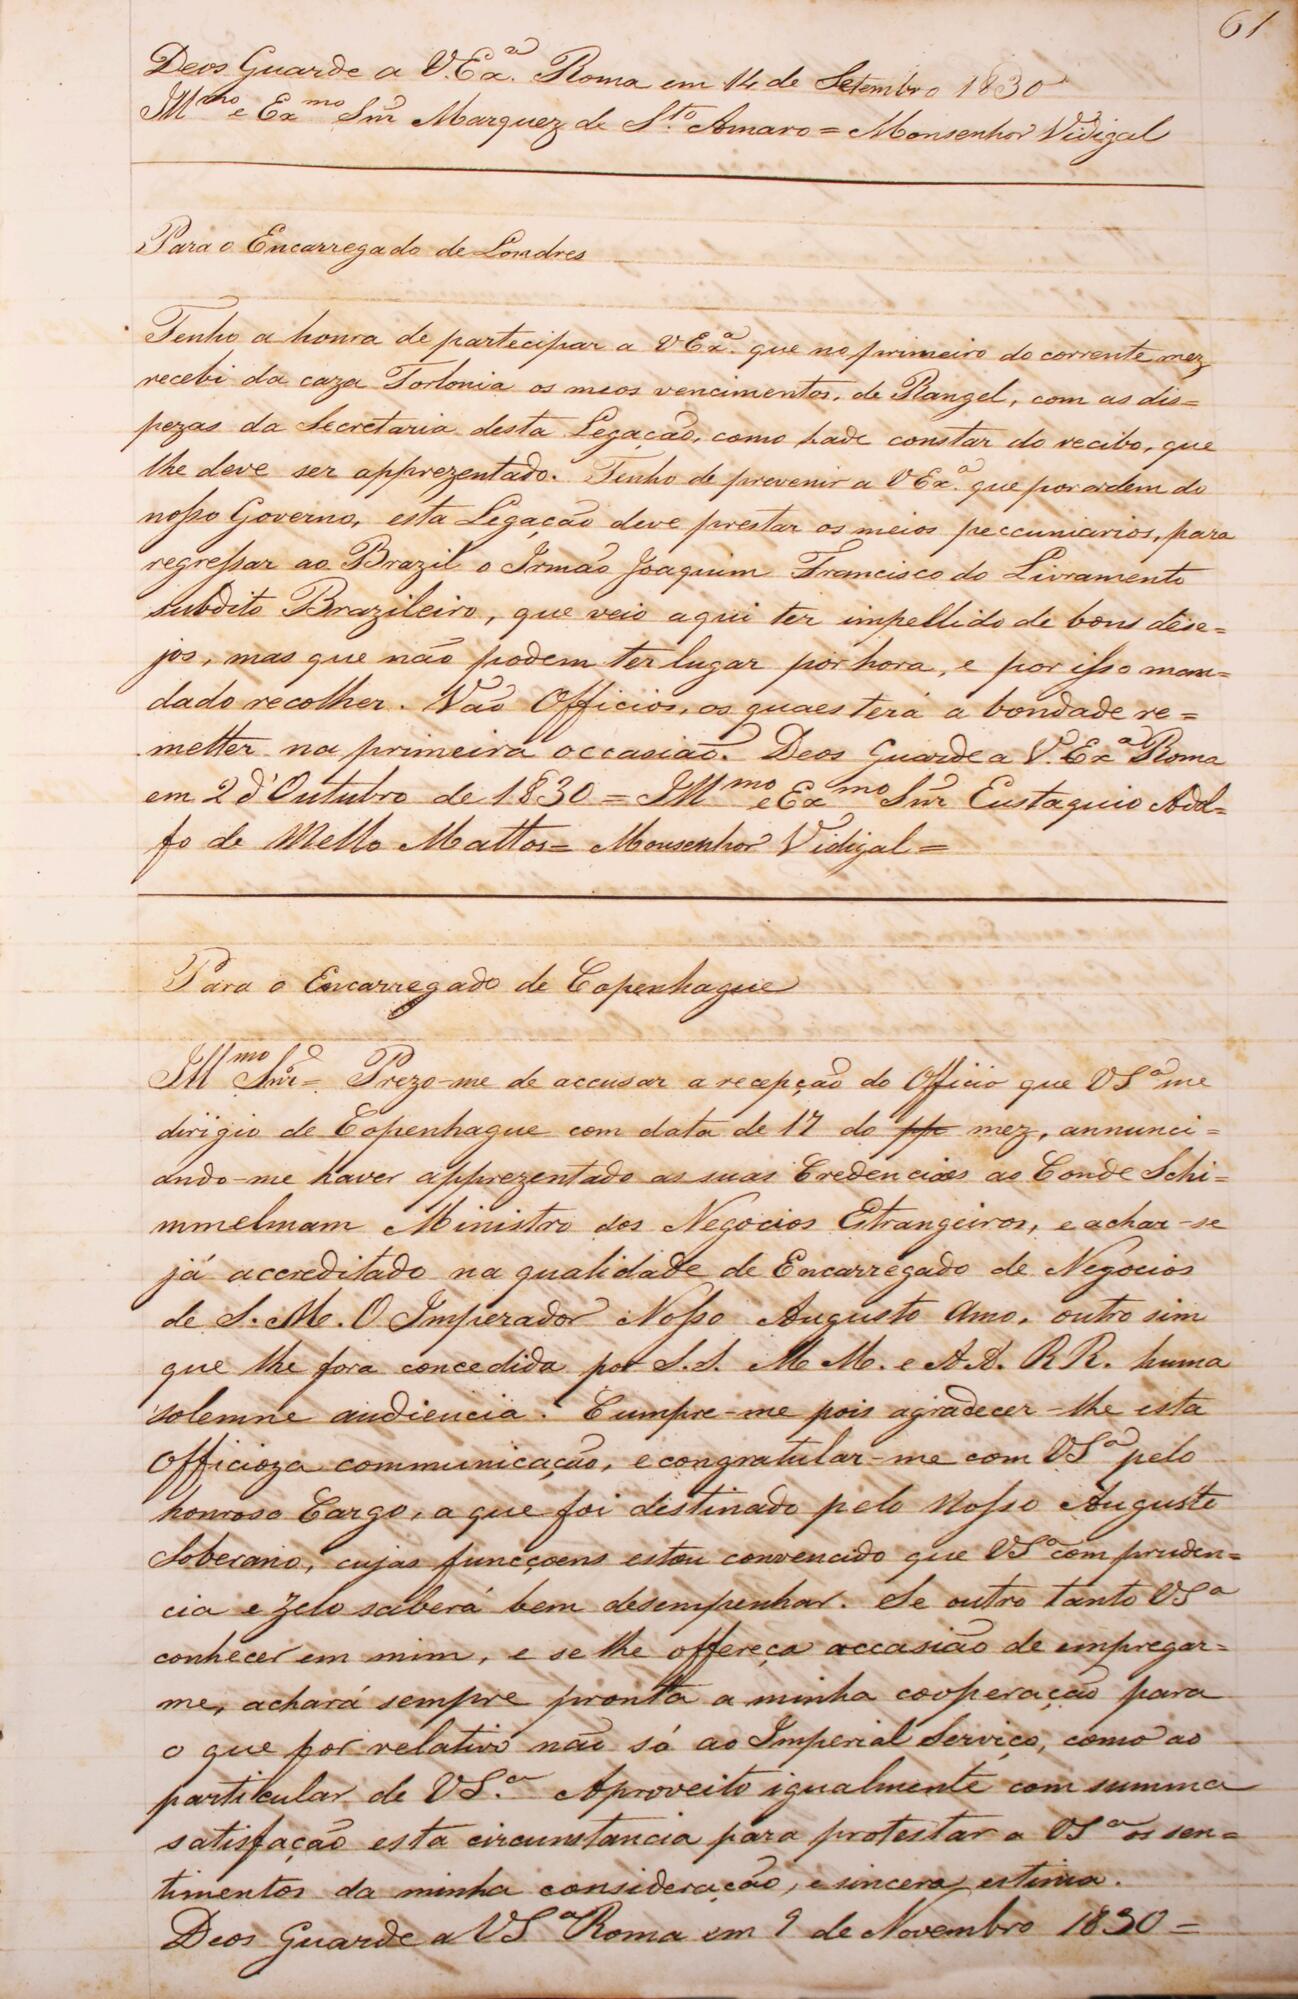 61
Deos Guarde a V.Exª. Roma em 14 de Setembro 1830
Illmo e Exmo Snr Marquez de Sto. Amaro = Monsenhor Vidigal
Para o Encarregado de Londres
Tenho a honra de partecipar a VExª. que no primeiro do corrente mez
recebi da caza Torlonia os meos vencimentos, de Rangel, com as dis=
pezas da Secretaria desta Legação, como hade constar do recibo, que
lhe deve ser apprezentado. Tenho de prevenir a VExª. que por ordem do
nosso Governo, esta Legação deve prestar os meios peccuniarios, para
regressar ao Brazil o Irmão Joaquim Francisco do Livramento
subdito Brazileiro, que veio aqui ter impellido de bons dese=
jos, mas que não podem ter lugar por hora, e por isso man=
dado recolher. Vão Officios, os quaes terá a bondade re=
metter na primeira occasião. Deos Guarde a V.Exª Roma
em 2 d'Outubro de 1830 = Illmo e Exmo Snr Eustaquio Adol=
fo de Mello Mattos = Monsenhor Vidigal =
Para o Encarregado de Copenhague
Illmo Snr = Prezo-me de accusar a recepção do Officio que VSª me
dirigio de Copenhague com data de 17 do pp mez, annunci=
ando-me haver apprezentado as suas Credenciaes ao Conde Schi=
mmelmam Ministro dos Negocios Estrangeiros, e achar-se
já accreditado na qualidade de Encarregado de Negocios
de S. M. O Imperador Nosso Augusto Amo, outro sim
que lhe fora concedida por S.S. M M. e A A. R R. huma
solemne audiencia. Cumpre-me pois agradecer-lhe esta
Officioza communicação, e congratular-me com VSª pelo
honroso Cargo, a que foi destinado pelo Nosso Augusto
Soberano, cujas funcçoens estou convencido que VSª com pruden=
cia e zelo saberá bem desempenhar. Se outro tanto VSª
conhecer em mim, e se lhe offereça occasião de empregar=
me, achará sempre pronta a minha cooperação para
o que for relativo não só ao Imperial Serviço, como ao
particular de VSª. Aproveito igualmente com summa
satisfação esta circunstancia para protestar a VSª os sen=
timentos da minha consideração, e sincera estima.
Deos Guarde a VSª Roma em 9 de Novembro 1830 =